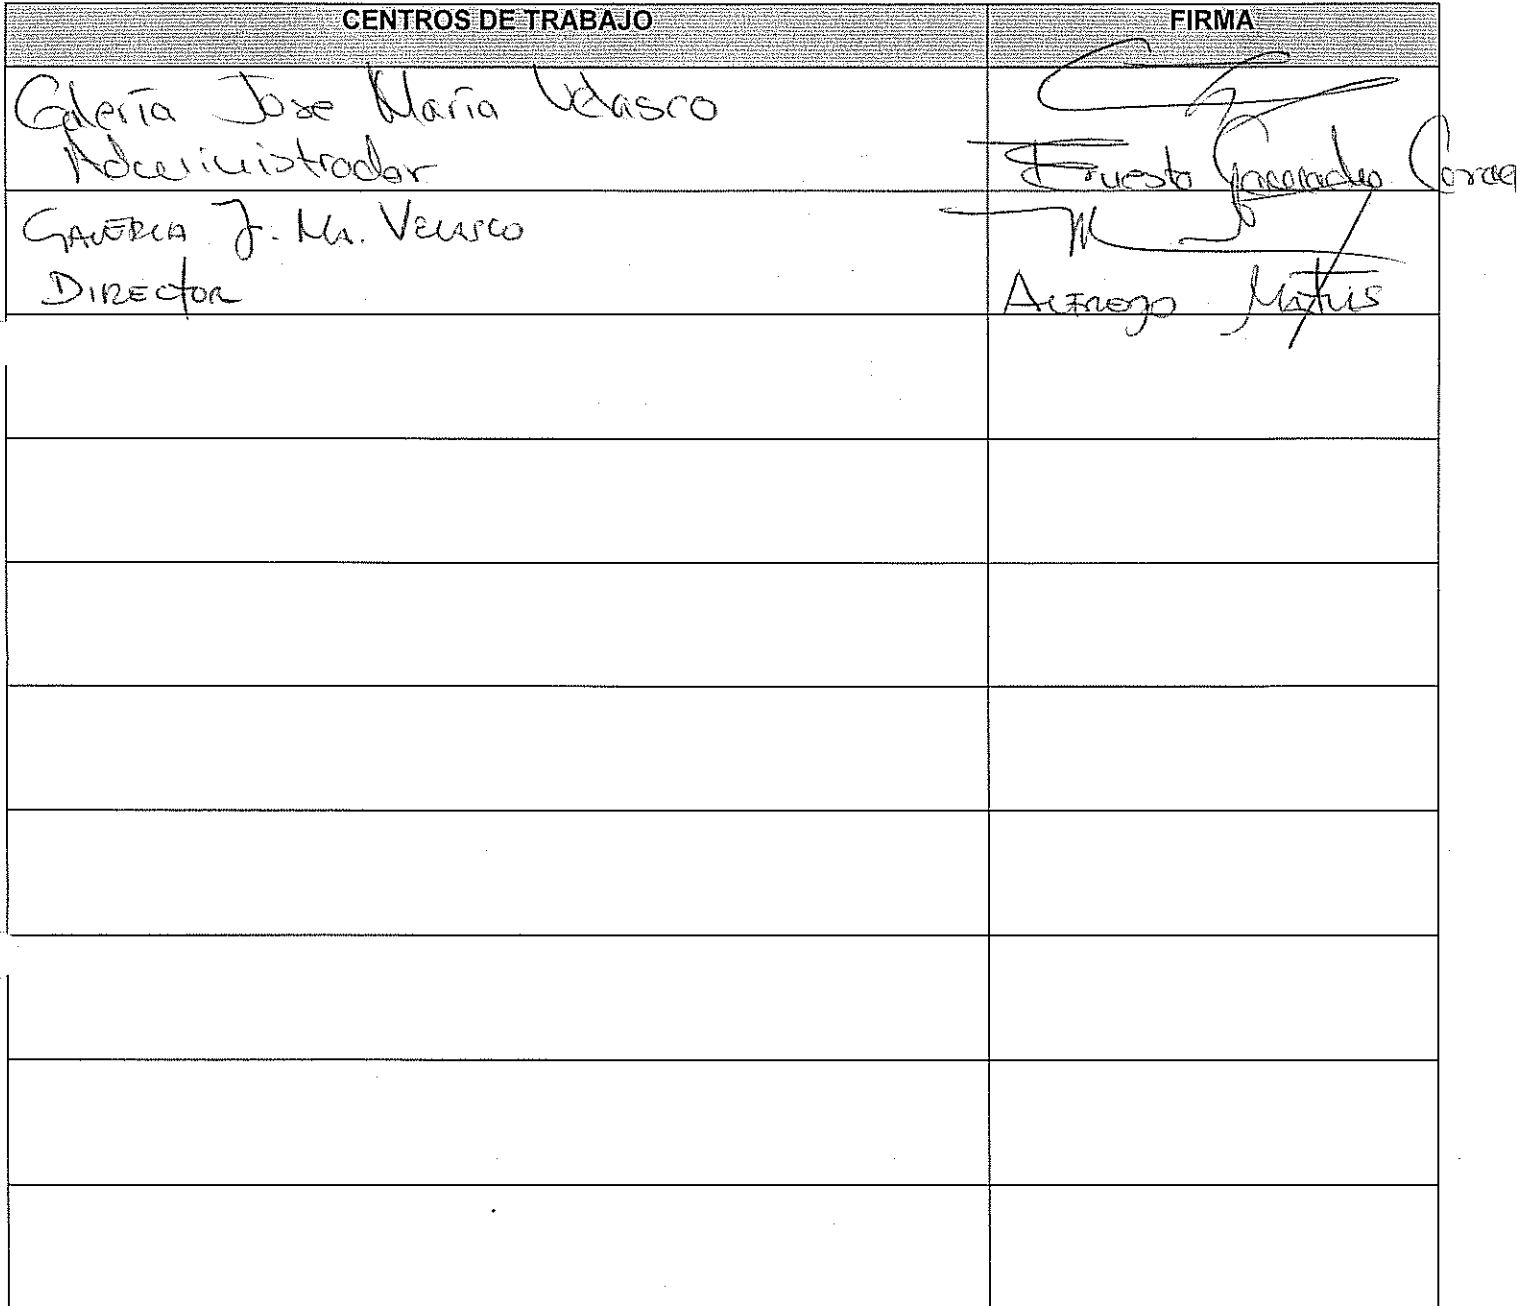 CENTROS DE TRABAJO FIRMA
Galería Jose María Velasco
Administrador
Ernesto Camacho
GALERIA J. Ma. Velasco
DIRECTOR
ALFREDO Matus